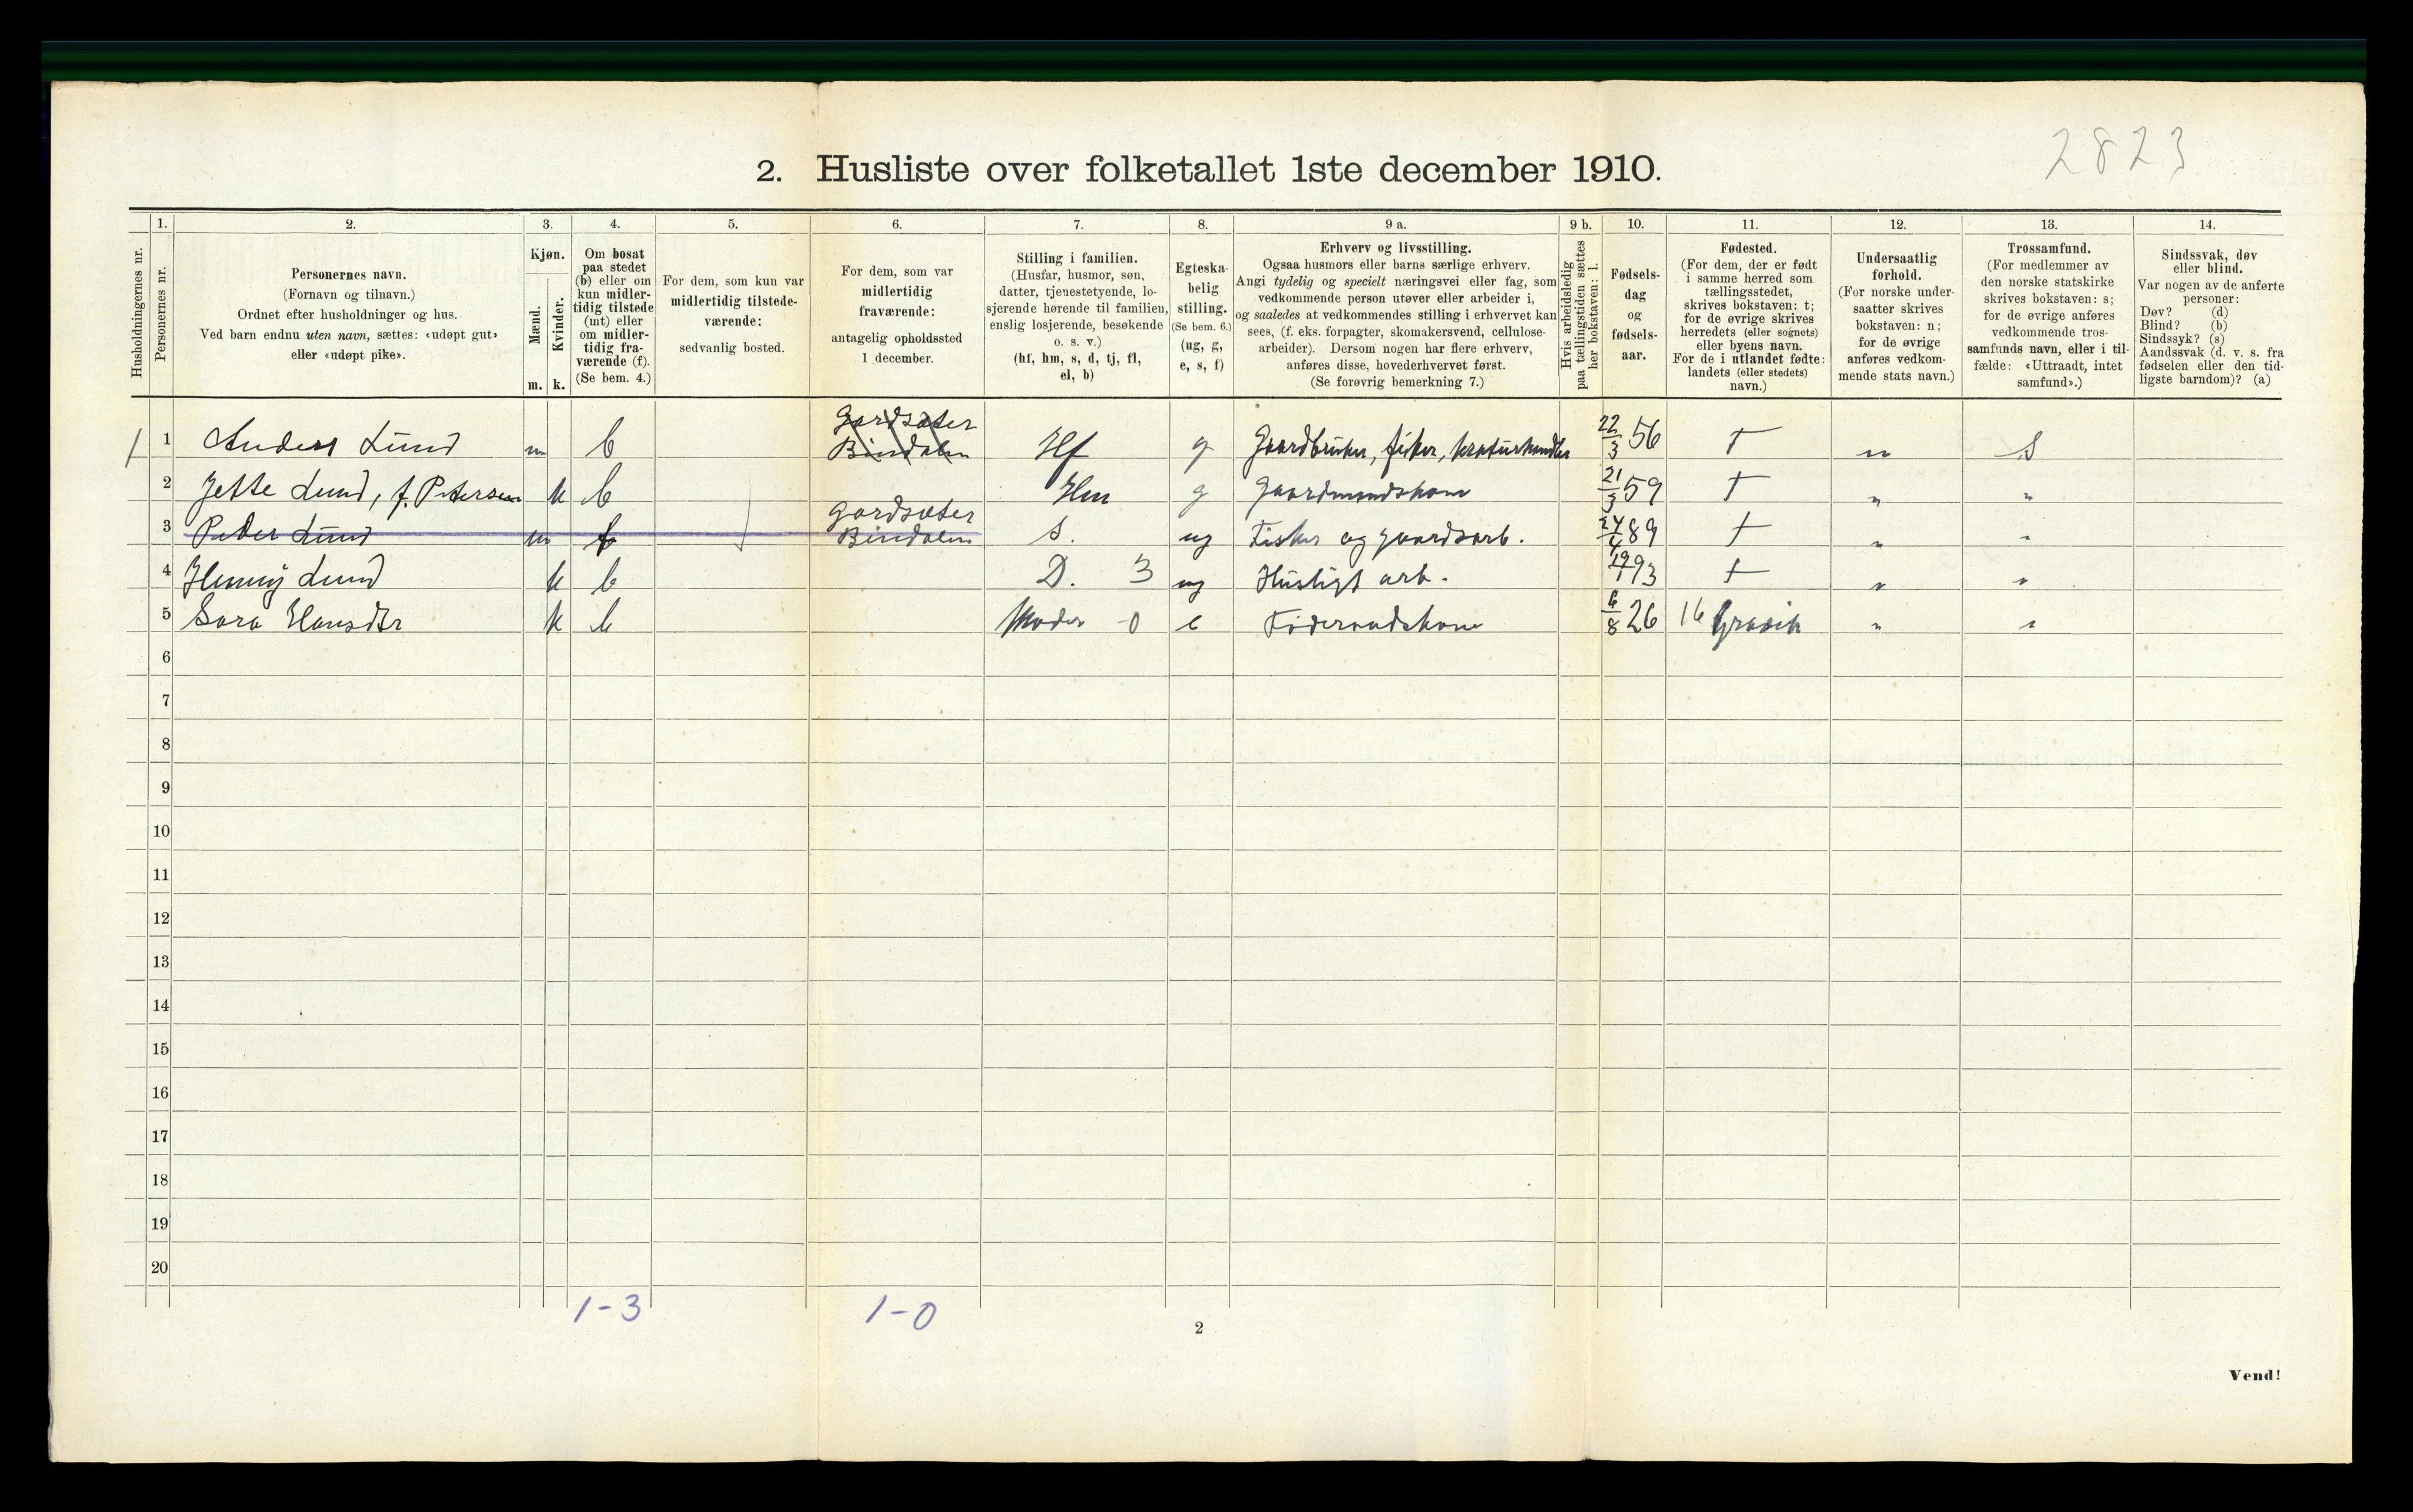 2823
2. Husliste over folketallet 1ste december 1910.
1. 2. 3. 4. 5. 6. 7. 8. 9 a. 9 b. 10. 11. 12. 13. 14.
Husholdningernes nr.
Personernes nr.
Personernes navn.
(Fornavn og tilnavn.)
Ordnet efter husholdninger og hus.
Ved barn endnu uten navn, sættes: «udøpt gut»
eller «udøpt pike».
Kjøn.
Mænd.
Kvinder.
m. k.
Om bosat
paa stedet
(b) eller om
kun midler-
tidig tilstede
(mt) eller
om midler-
tidig fra-
værende (f).
(Se bem. 4.)
For dem, som kun var
midlertidig tilstede-
værende:
sedvanlig bosted.
For dem, som var
midlertidig
fraværende:
antagelig opholdssted
1 december.
Stilling i familien.
(Husfar, husmor, søn,
datter, tjenestetyende, lo-
sjerende hørende til familien,
enslig losjerende, besøkende
o. s. v.)
(hf, hm, s, d, tj, fl,
el, b)
Egteska-
belig
stilling.
(Se bem. 6.)
(ug, g,
e, s, f)
Erhverv og livsstilling.
Ogsaa husmors eller barns særlige erhverv.
Angi tydelig og specielt næringsvei eller fag, som
vedkommende person utøver eller arbeider i,
og saaledes at vedkommendes stilling i erhvervet kan
sees, (f. eks. forpagter, skomakersvend, cellulose-
arbeider). Dersom nogen har flere erhverv,
anføres disse, hovederhvervet først.
(Se forøvrig bemerkning 7.)
Hvis arbeidsledig
paa tællingstiden sættes
her bokstaven: l.
Fødsels-
dag
og
fødsels-
aar.
Fødested.
(For dem, der er født
i samme herred som
tællingsstedet,
skrives bokstaven: t;
for de øvrige skrives
herredets (eller sognets)
eller byens navn.
For de i utlandet fødte:
landets (eller stedets)
navn.)
Undersaatlig
forhold.
(For norske under-
saatter skrives
bokstaven: n;
for de øvrige
anføres vedkom-
mende stats navn.)
Trossamfund.
(For medlemmer av
den norske statskirke
skrives bokstaven: s;
for de øvrige anføres
vedkommende tros-
samfunds navn, eller i til-
fælde: «Uttraadt, intet
samfund».)
Sindssvak, døv
eller blind.
Var nogen av de anførte
personer:
Døv? (d)
Blind? (b)
Sindssyk? (s)
Aandssvak (d. v. s. fra
fødselen eller den tid-
ligste barndom)? (a)
1 1 Anders Lund m b Gardsæter Bindalen Hf g Gaardbruker, fisker, kraturhandler 22/3 56 T n S
2 Jette Lund, f. Petersen k b Hm g Gaardmandskone 21/3 59 T " "
3 Peder Lund m f Gardsæter Bindalen S. ug Fisker og gaardsarb. 24/4 89 t " "
4 Henny Lund k b D. 3 ug Husligt arb. 19/1 93 t " "
5 Sara Hansdtr k b Moder 0 e Føderaadskone 6/8 26 16 Gravik " "
6
7
8
9
10
11
12
13
14
15
16
17
18
19
20
1-3 1-0
2
Vend!